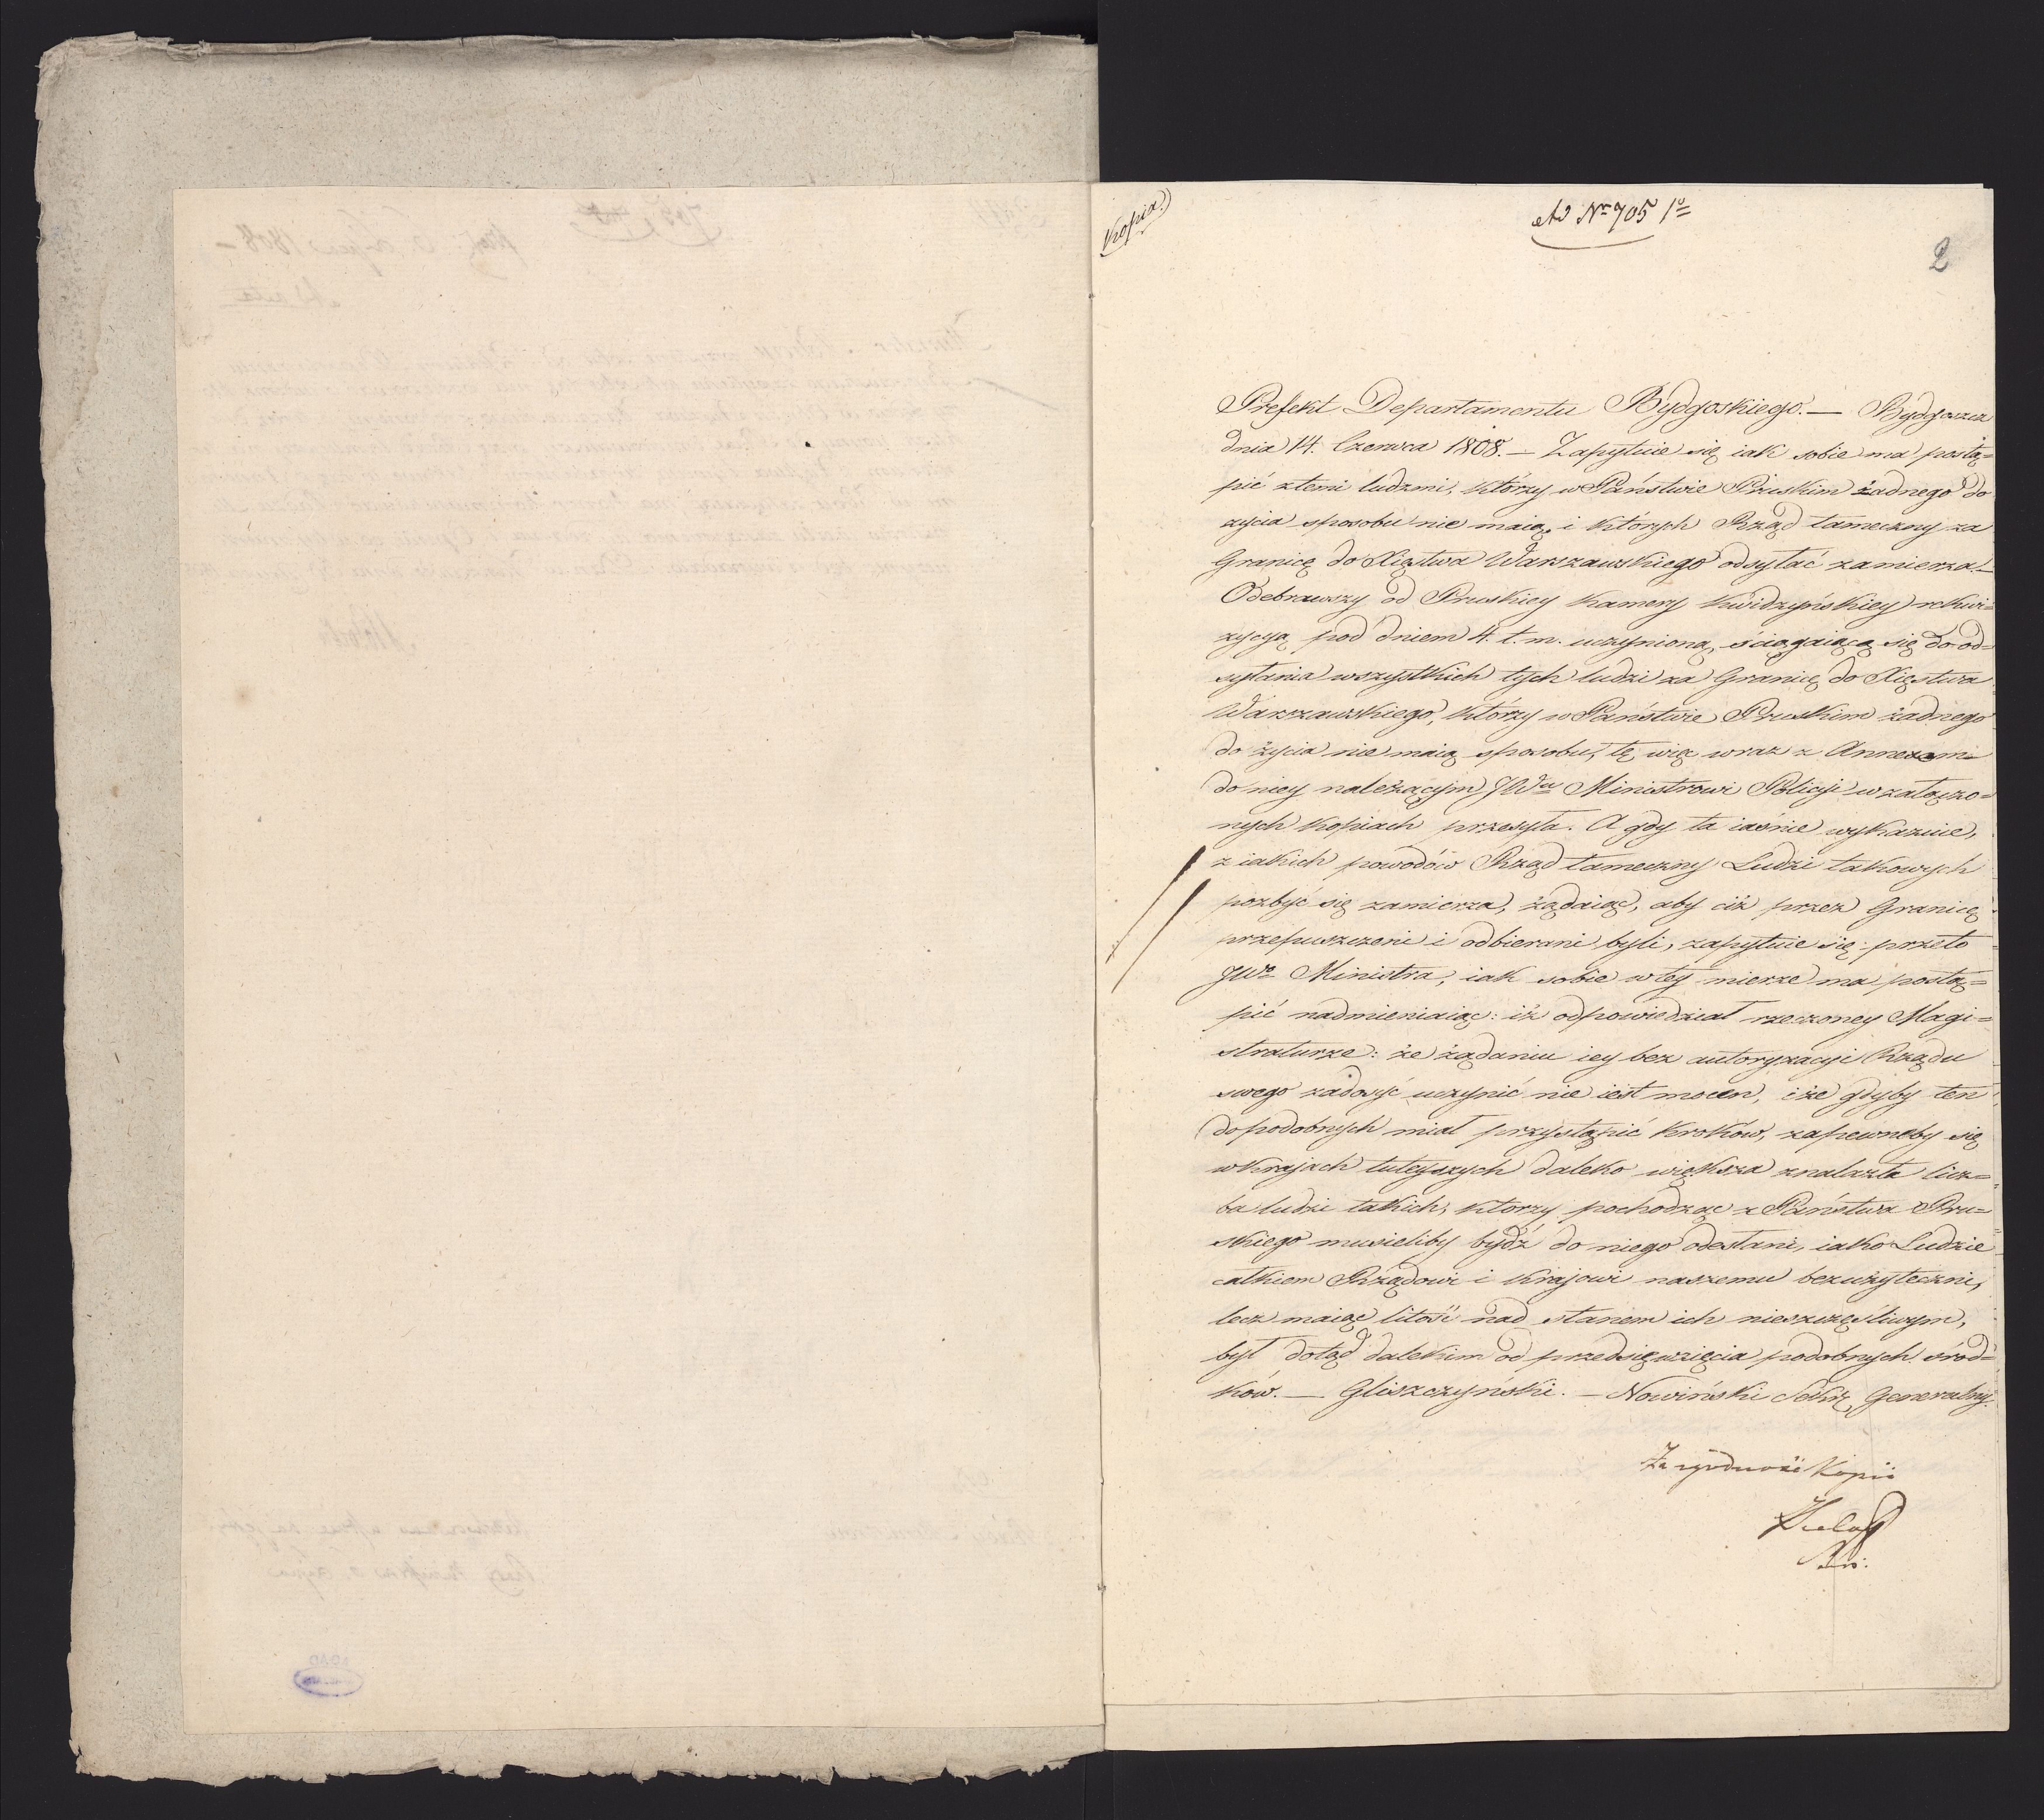 Kopia
Ad Nr 705 1º
2
Prefekt Departamentu Bydgoskiego. — Bydgoszcz
dnia 14. Czerwca 1808. — Zapytuie się iak sobie ma postą=
pić z temi ludzmi, którzy w Państwie Pruskim żadnego do
zycia sposobu nie maią i których Rząd tameczny za
Granicę do Xięstwa Warszawskiego odsyłać zamierza. —
Odebrawszy od Pruskiey Kamery Kwidzyńskiey rekwi=
zycyą pod dniem 4. t. m. uczynioną, ściągaiącą się do od=
syłania wszystkich tych ludzi za Granicę do Xięstwa
Warszawskiego, którzy w Państwie Pruskim żadnego
do życia nie maią sposobu, tę więc wraz z Annexem
do niey należącym JWu Ministrowi Policyi w załączo=
nych kopiach przesyła. A gdy ta iaśnie wykazuie,
z iakich powodów Rząd tameczny Ludzi takowych
pozbyć się zamierza, żądaiąc, aby ciż przez Granicę
przepuszczeni i odbierani byli, zapytuie się przeto
JWo Ministra, iak sobie w tey mierze ma postą=
pić nadmieniaiąc: iż odpowiedział rzeczoney Magi=
straturze: że żądaniu iey bez autoryzacyi Rządu
swego zadosyć uczynić nie iest mocen, i że gdyby ten
do podobnych miał przystąpić kroków, zapewneby się
w krajach tuteyszych daleko większa znalazła licz=
ba ludzi takich, którzy pochodząc z Państwa Pru=
skiego musieliby bydź do niego odesłani, iako Ludzie
całkiem Rządowi i Krajowi naszemu bezużyteczni,
lecz maiąc litość nad stanem ich nieszczęśliwym,
był dotąd dalekim od przedsięwzięcia podobnych środ=
ków. — Gliszczyński. — Nowiński Sekr. Generalny.
Za zgodność Kopii